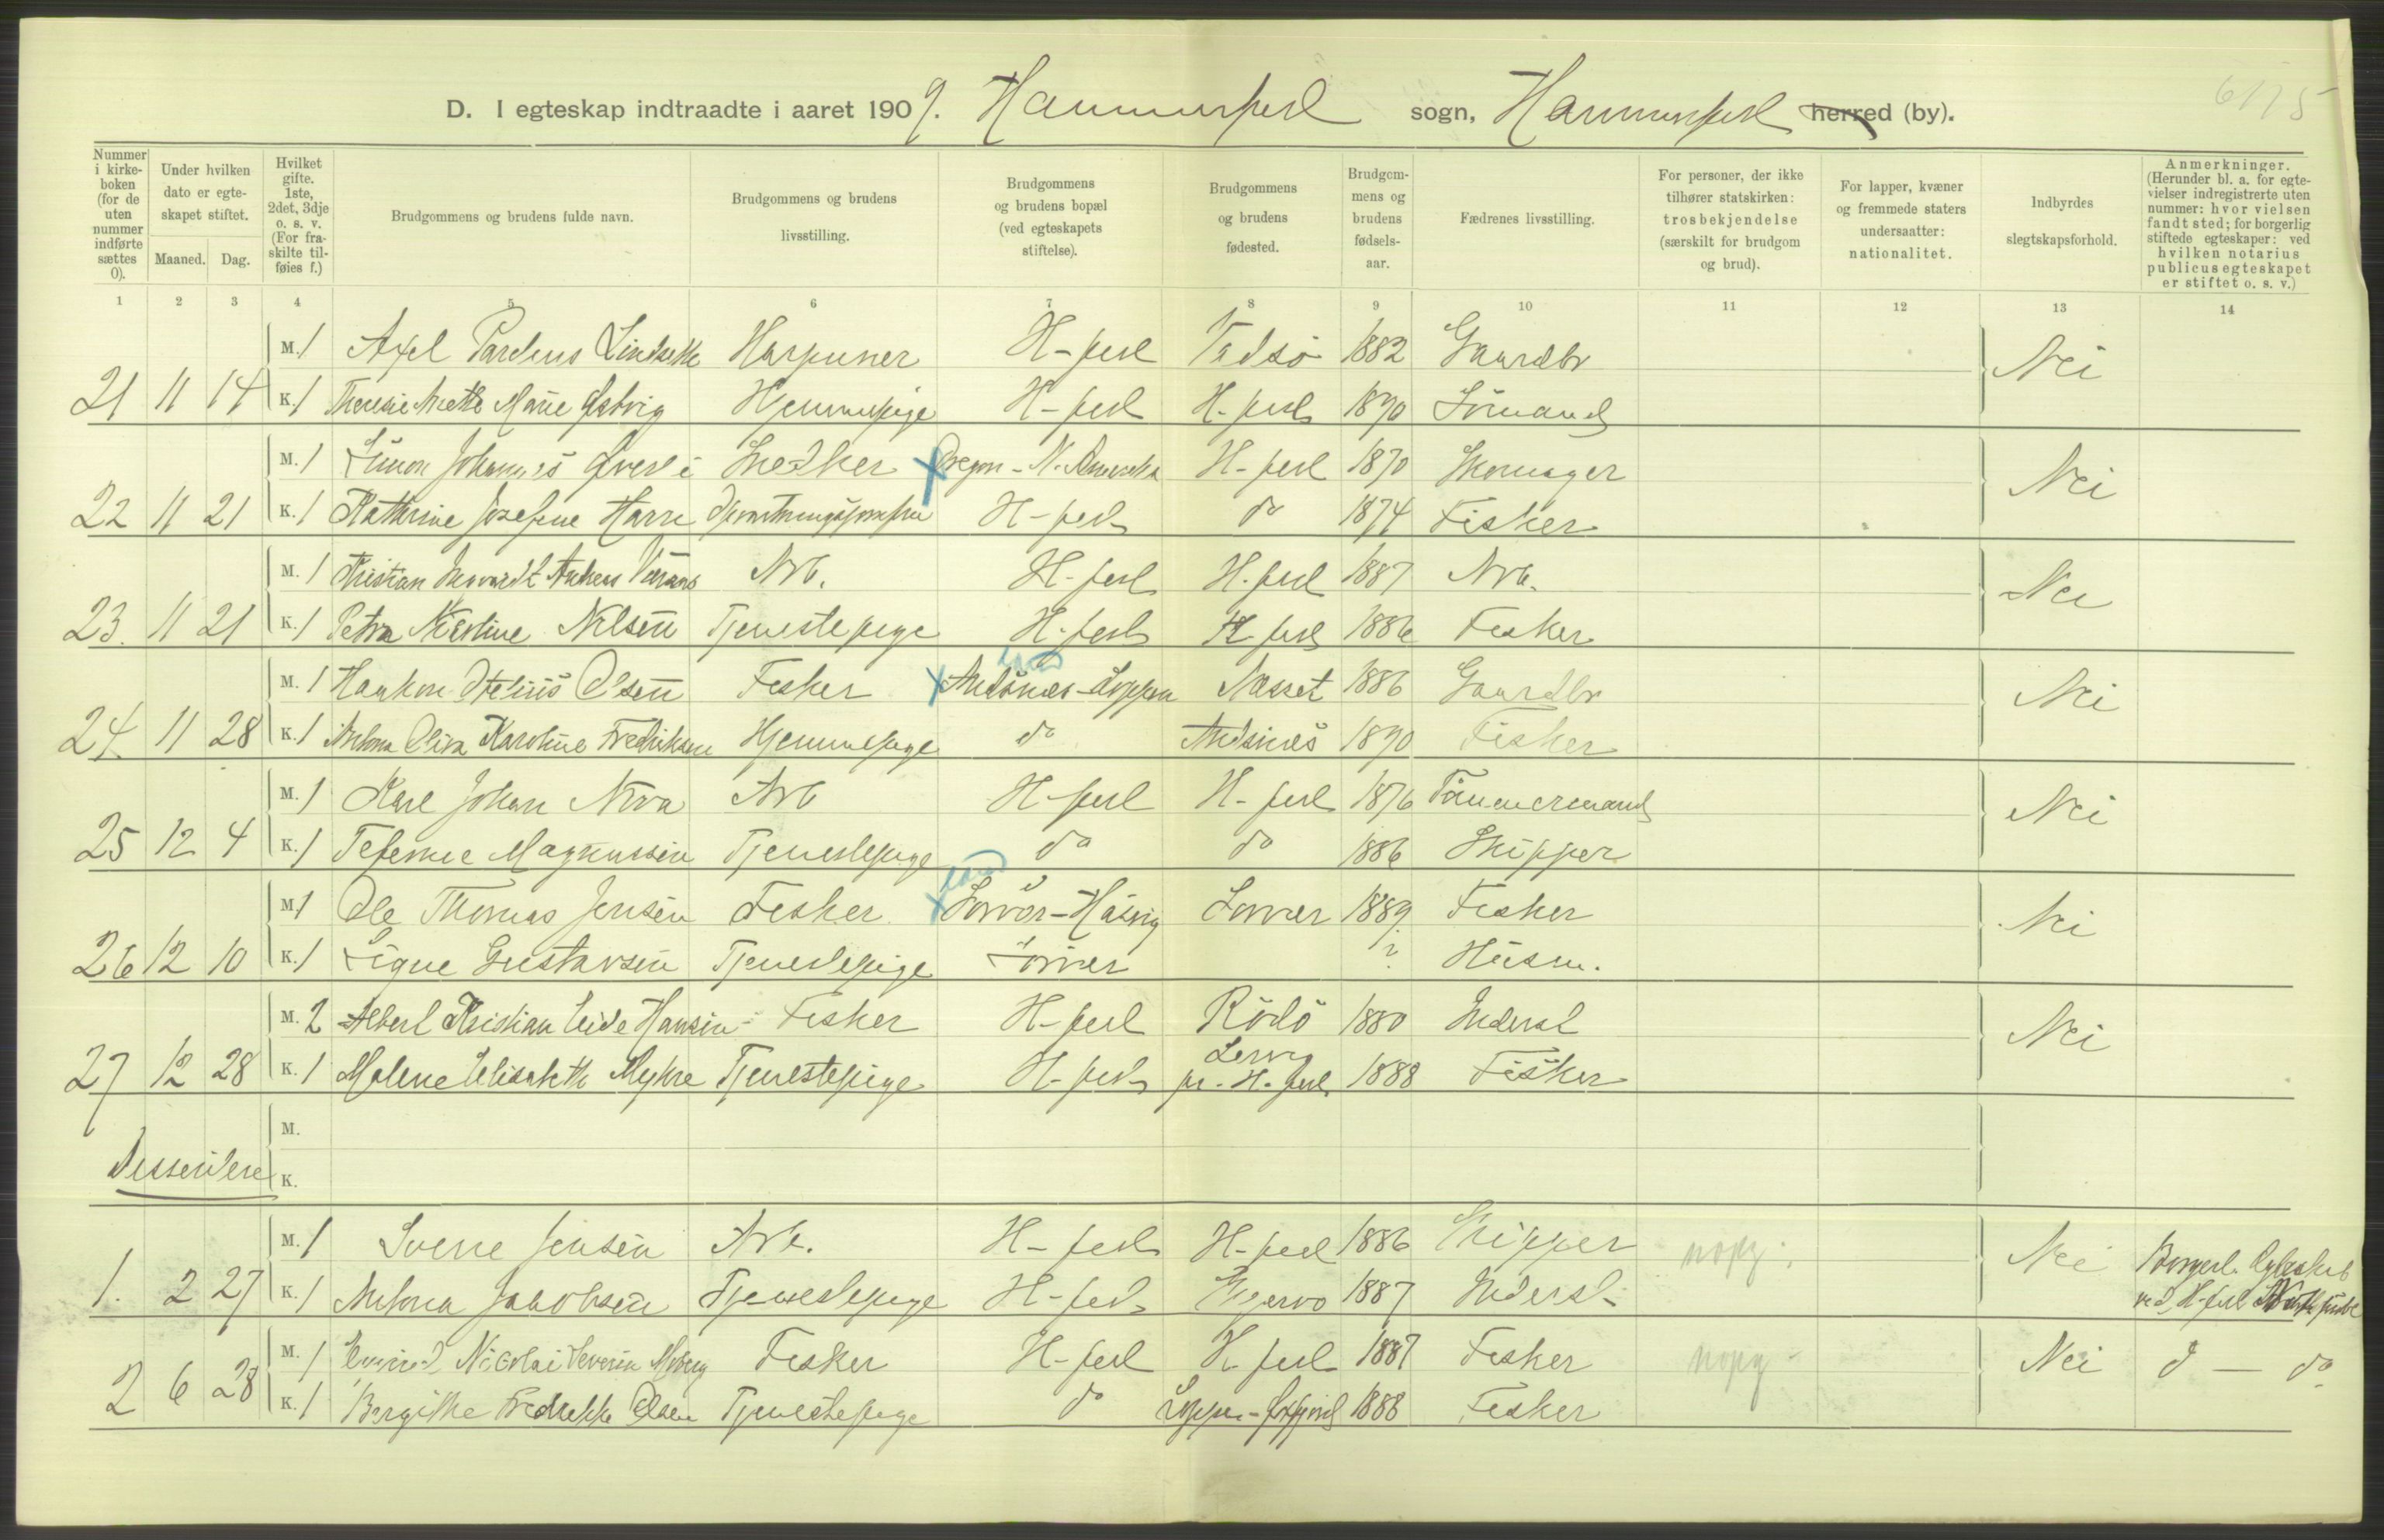 6175
D. I egteskap indtraadte i aaret 1909. Hammerfest sogn, Hammerfest herred (by).
Nummer i kirkeboken (for de uten nummer indførte sættes 0).
Under hvilken dato er egteskapet stiftet.
Maaned. Dag.
Hvilket gifte. 1ste, 2det, 3dje o. s. v. (For fraskilte tilføies f.)
Brudgommens og brudens fulde navn.
Brudgommens og brudens livsstilling.
Brudgommens og brudens bopæl (ved egteskapets stiftelse).
Brudgommens og brudens fødested.
Brudgommens og brudens fødselsaar.
Fædrenes livsstilling.
For personer, der ikke tilhører statskirken: trosbekjendelse (særskilt for brudgom og brud).
For lapper, kvæner og fremmede staters undersaatter: nationalitet.
Indbyrdes slegtskapsforhold.
Anmerkninger. (Herunder bl. a. for egtevielser indregistrerte uten nummer: hvor vielsen fandt sted; for borgerlig stiftede egteskaper: ved hvilken notarius publicus egteskapet er stiftet o. s. v.)
1 2 3 4 5 6 7 8 9 10 11 12 13 14
M. 1 Axel Lindseth Harpuner H-fest Vadsö 1882 Gaardbr Nei
21 11 14 K. 1 Therese Marie H-fest H-fest 1890 Sömand
M. 1 Simon Johannes Snedker Oregon - N. Amerika H-fest 1870 Skomager Nei
22 11 21 K. 1 Kathrine Josefine Harr H-fest do 1874 Fisker
M. 1 Kristian Arb. H-fest H-fest 1887 Arb. Nei
23. 11 21 K. 1 Petra Nilsen Tjenestepige H-fest H-fest 1886 Fisker
M. 1 Haakon Olsen Fisker Andsnæs-Loppen Næsset 1886 Gaardbr Nei
24. 11 28 K. 1 Karoline Fredriksen Hjemmepige do Andsnæs 1890 Fisker
M. 1 Karl Johan Arb H-fest H-fest 1876 Tömmermand Nei
25 12 4 K. 1 Magnussen Tjenestepige do do 1886 Skipper
M. 1 Ole Thomas Jensen Fisker Sörvær-Hasvig Sörvær 1889. Fisker Nei
26 12 10 K. 1 Signe Gustavsen Tjenestepige Sörvær ? Husm.
M. 2 Albert Kristian Hansen Fisker H-fest Rödö 1880 Inderst Nei
27 12 28 K. 1 Malene Elisabeth Myhre Tjenestepige H-fest pr. H-fest 1888 Fisker
M.
Dissentere K.
M. 1 Sverre Jensen Arb. H-fest H-fest 1886 Skipper Nei Borgerl. Egteskab
1. 2 27 K. 1 Antona Jakobsen Tjenestepige H-fest 1887 Inderst ved H-fest
M. 1 Nicolai Severin Fisker H-fest H-fest 1887 Fisker Nei d — do
2 6 28 K. 1 Bergitte Fredrikke Olsen Tjenestepige do Loppen-Öxfjord 1888 Fisker